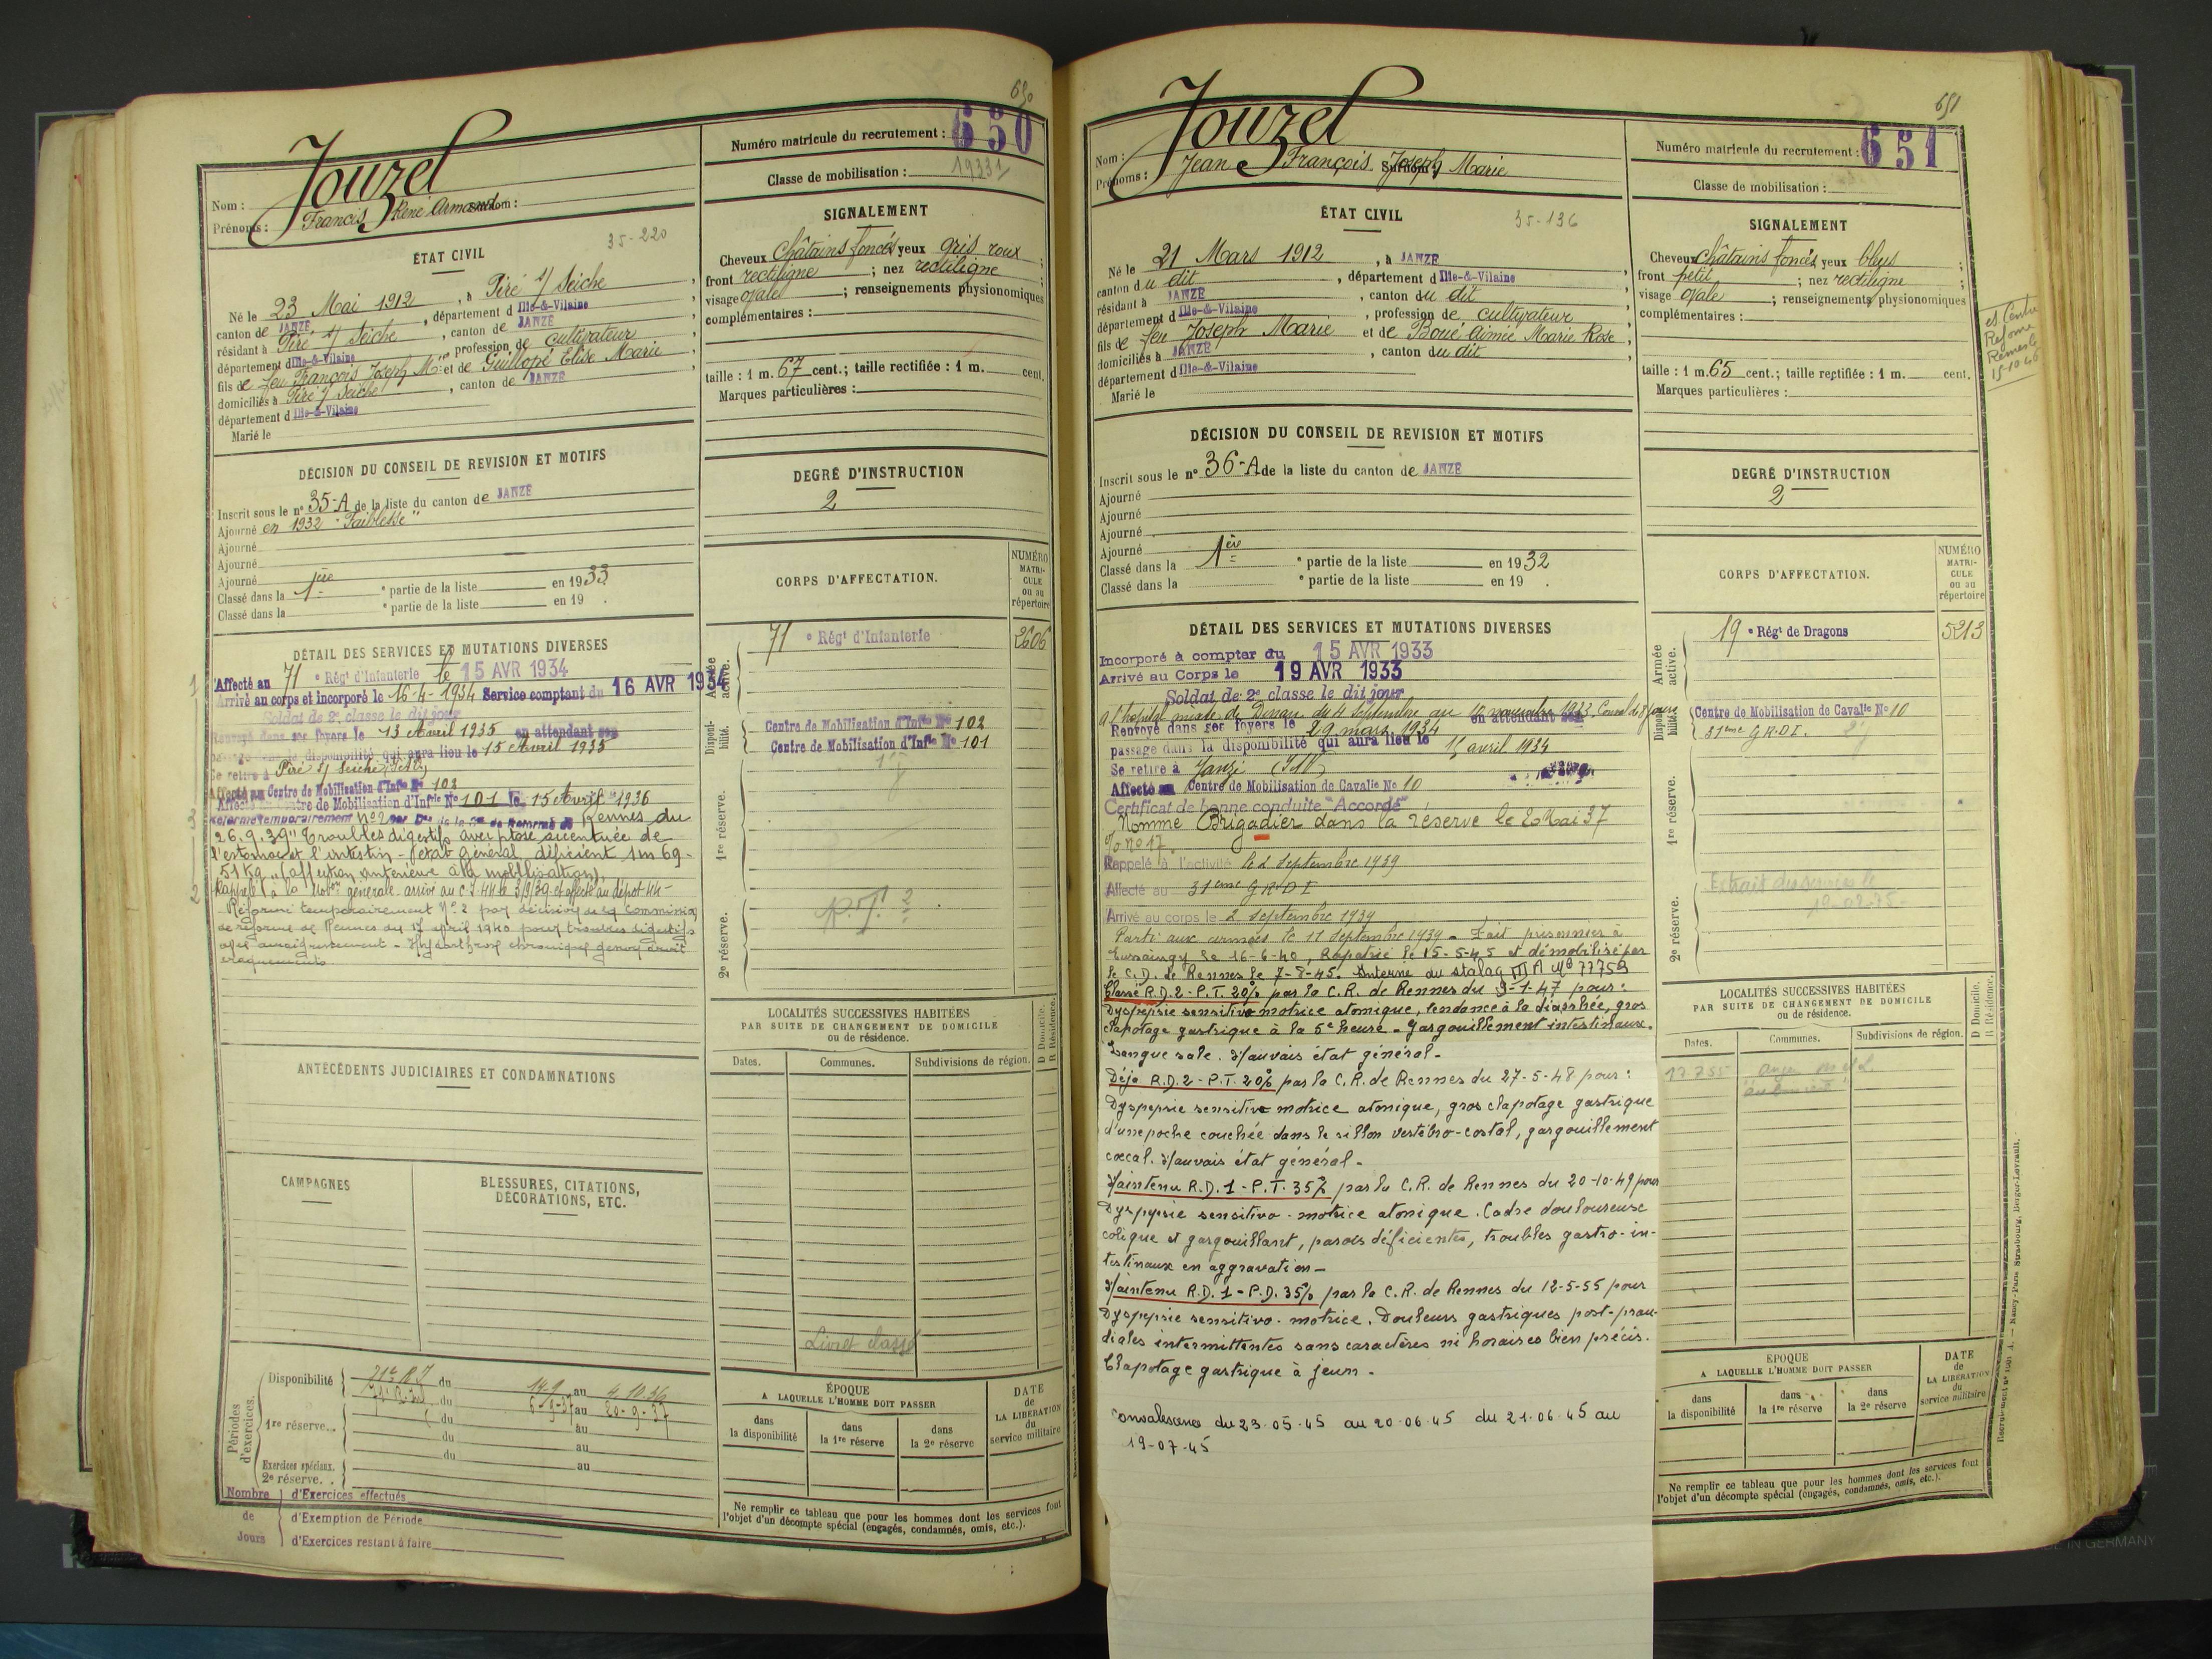 650
Jouzel
Nom :
Prénoms : Francis René Armand Surnom :
Numéro matricule du recrutement : 650
Classe de mobilisation :
ÉTAT CIVIL
35-220
Né le 23 Mai 1912, à Piré s/ Seiche,
canton de JANZÉ, département d Ille-&-Vilaine
résidant à Piré s/ Seiche, canton de JANZÉ
département d Ille-&-Vilaine, profession de cultivateur
fils de feu François Joseph M. et de Guillopé Elise Marie
domiciliés à Piré s/ Seiche, canton de JANZÉ
département d Ille-&-Vilaine
Marié le
SIGNALEMENT
Cheveux châtains foncés yeux gris roux ;
front rectiligne ; nez rectiligne ;
visage ovale ; renseignements physionomiques
complémentaires :
taille : 1 m. 67 cent.; taille rectifiée : 1 m. cent.
Marques particulières :
DÉCISION DU CONSEIL DE REVISION ET MOTIFS
Inscrit sous le n° 35-A de la liste du canton de JANZÉ
Ajourné en 1932 "Faiblesse"
Ajourné
Ajourné
Ajourné
Classé dans la 1ère partie de la liste en 1933.
Classé dans la ° partie de la liste en 19 .
DEGRÉ D'INSTRUCTION
2
CORPS D'AFFECTATION.
NUMÉRO MATRI-CULE ou au répertoire
Armée active.
71° Régt d'Infanterie 2606
Disponi-bilité.
Centre de Mobilisation d'Infie No 102
Centre de Mobilisation d'Infie No 101
1re réserve.
2e réserve.
DÉTAIL DES SERVICES ET MUTATIONS DIVERSES
Affecté au 71° Régt d'Infanterie le 15 AVR 1934
Arrivé au corps et incorporé le 16-4-1934 Service comptant du 16 AVR 1934
Soldat de 2e classe le dit jour
Renvoyé dans ses foyers le 13 Avril 1935 en attendant son
passage dans la disponibilité qui aura lieu le 15 Avril 1935
Se retire à Piré s/ Seiche
Affecté au Centre de Mobilisation d'Infie No 102
Affecté au Centre de Mobilisation d'Infie No 101 le 15 Avril 1936
Réformé temporairement No 2 Rennes du
26.9.39 "Troubles digestifs avec ptose accentuée de
l'estomac et l'intestin - état général déficient 1m69-
51 kg" (affection antérieure à la mobilisation).
Rappelé à la Mobon générale arrivé au C.I. 44 le 3/9/39 et affecté au dépot 44-
Réformé temporairement No 2 par décision de la Commission
de réforme de Rennes du 17 avril 1940 pour troubles digestifs
avec amaigrissement - Hydarthrose chronique genou droit
craquements
ANTÉCÉDENTS JUDICIAIRES ET CONDAMNATIONS
LOCALITÉS SUCCESSIVES HABITÉES
PAR SUITE DE CHANGEMENT DE DOMICILE
ou de résidence.
D Domicile.
R Résidence.
Dates. Communes. Subdivisions de région.
Livret classé
CAMPAGNES
BLESSURES, CITATIONS,
DÉCORATIONS, ETC.
Périodes d'exercices.
Disponibilité 71e R.I du 14.9 au 4.10.36
1re réserve... du 6-9-37 au 20-9-37
du au
du au
Exercices spéciaux.
2e réserve. . du au
Nombre de Jours
d'Exercices effectués
d'Exemption de Période
d'Exercices restant à faire
ÉPOQUE
A LAQUELLE L'HOMME DOIT PASSER
dans la disponibilité
dans la 1re réserve
dans la 2e réserve
DATE de LA LIBÉRATION du service militaire
Ne remplir ce tableau que pour les hommes dont les services font
l'objet d'un décompte spécial (engagés, condamnés, omis, etc.).
651
Jouzel
Nom :
Prénoms : Jean François Joseph Marie Surnom :
Numéro matricule du recrutement : 651
Classe de mobilisation :
ÉTAT CIVIL
35-136
Né le 21 Mars 1912, à JANZÉ
canton du dit, département d Ille-&-Vilaine
résidant à JANZÉ, canton du dit
département d Ille-&-Vilaine, profession de cultivateur
fils de feu Joseph Marie et de Boué Aimée Marie Rose
domiciliés à JANZÉ, canton du dit
département d Ille-&-Vilaine
Marié le
SIGNALEMENT
Cheveux châtains foncés yeux bleus ;
front petit ; nez rectiligne ;
visage ovale ; renseignements physionomiques
complémentaires :
taille : 1 m. 65 cent.; taille rectifiée : 1 m. cent.
Marques particulières :
Centre
Réforme
Rennes le
15-10-46
DÉCISION DU CONSEIL DE REVISION ET MOTIFS
Inscrit sous le n° 36-A de la liste du canton de JANZÉ
Ajourné
Ajourné
Ajourné
Ajourné
Classé dans la 1ère ° partie de la liste en 1932
Classé dans la ° partie de la liste en 19 .
DEGRÉ D'INSTRUCTION
2
CORPS D'AFFECTATION.
NUMÉRO MATRI-CULE ou au répertoire
Armée active.
19° Régt de Dragons 5213
Disponi-bilité.
Centre de Mobilisation de Cavalie No 10
31ème G.R.D.I.
1re réserve.
2e réserve.
Extrait des services le
DÉTAIL DES SERVICES ET MUTATIONS DIVERSES
Incorporé à compter du 15 AVR 1933
Arrivé au Corps le 19 AVR 1933
Soldat de 2e classe le dit jour
A l'hopital mixte de Dinan du 4 septembre au 10 novembre 1933. Conval. de 8 jours
Renvoyé dans ses foyers le 29 mars 1934 en attendant son
passage dans la disponibilité qui aura lieu le 15 avril 1934
Se retire à Janzé (I&V)
Affecté au Centre de Mobilisation de Cavalie No 10
Certificat de bonne conduite "Accordé"
Nommé Brigadier dans la réserve le 2 Mai 37
No 17.
Rappelé à l'activité le 2 septembre 1939
Affecté au 31ème G.R.D.I
Arrivé au corps le 2 septembre 1939
Parti aux armées le 11 septembre 1939 - Fait prisonnier à
le 16-6-40, Rapatrié le 15-5-45 et démobilisé par
le C.D. de Rennes le 7-8-45. Interné au stalag III A No 77759
Classé R.D.2 - P.T. 20% par la C.R. de Rennes du 9-1-47 pour :
Dyspepsie sensitivo motrice atonique, tendance à la diarrhée, gros
clapotage gastrique à la 5e heure - Gargouillement intestinaux.
Langue sale. Mauvais état général -
Déjà R.D.2 - P.T. 20% par la C.R. de Rennes du 27-5-48 pour :
Dyspepsie sensitivo motrice atonique, gros clapotage gastrique
d'une poche couchée dans le sillon vertébro-costal, gargouillement
cœcal. Mauvais état général -
Maintenu R.D. 1 - P.T. 35% par la C.R. de Rennes du 20-10-49 pour
Dyspepsie sensitivo - motrice atonique. Cadre douloureuse
colique et gargouillant, parois déficientes, troubles gastro-in-
testinaux en aggravation -
Maintenu R.D. 1 - P.D. 35% par la C.R. de Rennes du 12-5-55 pour
Dyspepsie sensitivo - motrice. Douleurs gastriques post-pran-
diales intermittentes sans caractères ni horaires bien précis.
Clapotage gastrique à jeun -
Convalescence du 23-05-45 au 20-06-45 du 21-06-45 au
19-07-45
LOCALITÉS SUCCESSIVES HABITÉES
PAR SUITE DE CHANGEMENT DE DOMICILE
ou de résidence.
D Domicile.
R Résidence.
Dates. Communes. Subdivisions de région.
ÉPOQUE
A LAQUELLE L'HOMME DOIT PASSER
dans la disponibilité
dans la 1re réserve
dans la 2e réserve
DATE de LA LIBÉRATION du service militaire
Ne remplir ce tableau que pour les hommes dont les services font
l'objet d'un décompte spécial (engagés, condamnés, omis, etc.).
IN GERMANY